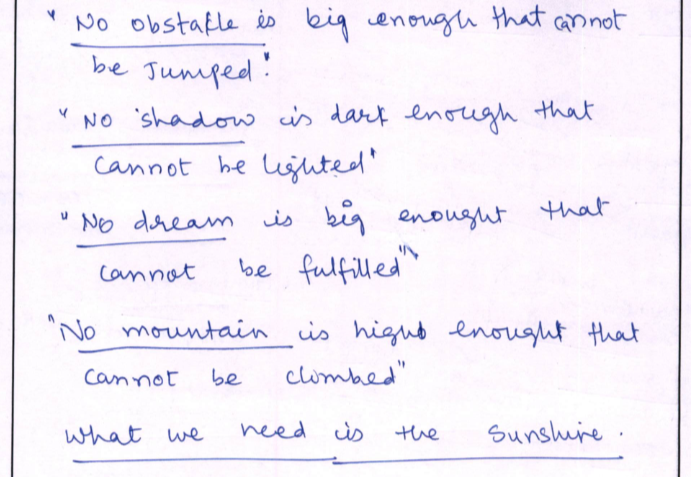 "No obstakle is big enough that cannot
be Jumped."
"No shadow is dark enough that
cannot be lighted"
"No dream is big enought that
cannot be fulfilled"
"No mountain is high enought that
cannot be clombed"
What we need is the Sunshire.